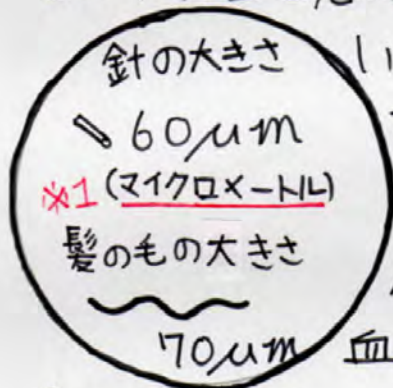 針の大きさ
60μm
※1(マイクロメートル)
髪の毛の大きさ
70μm 血